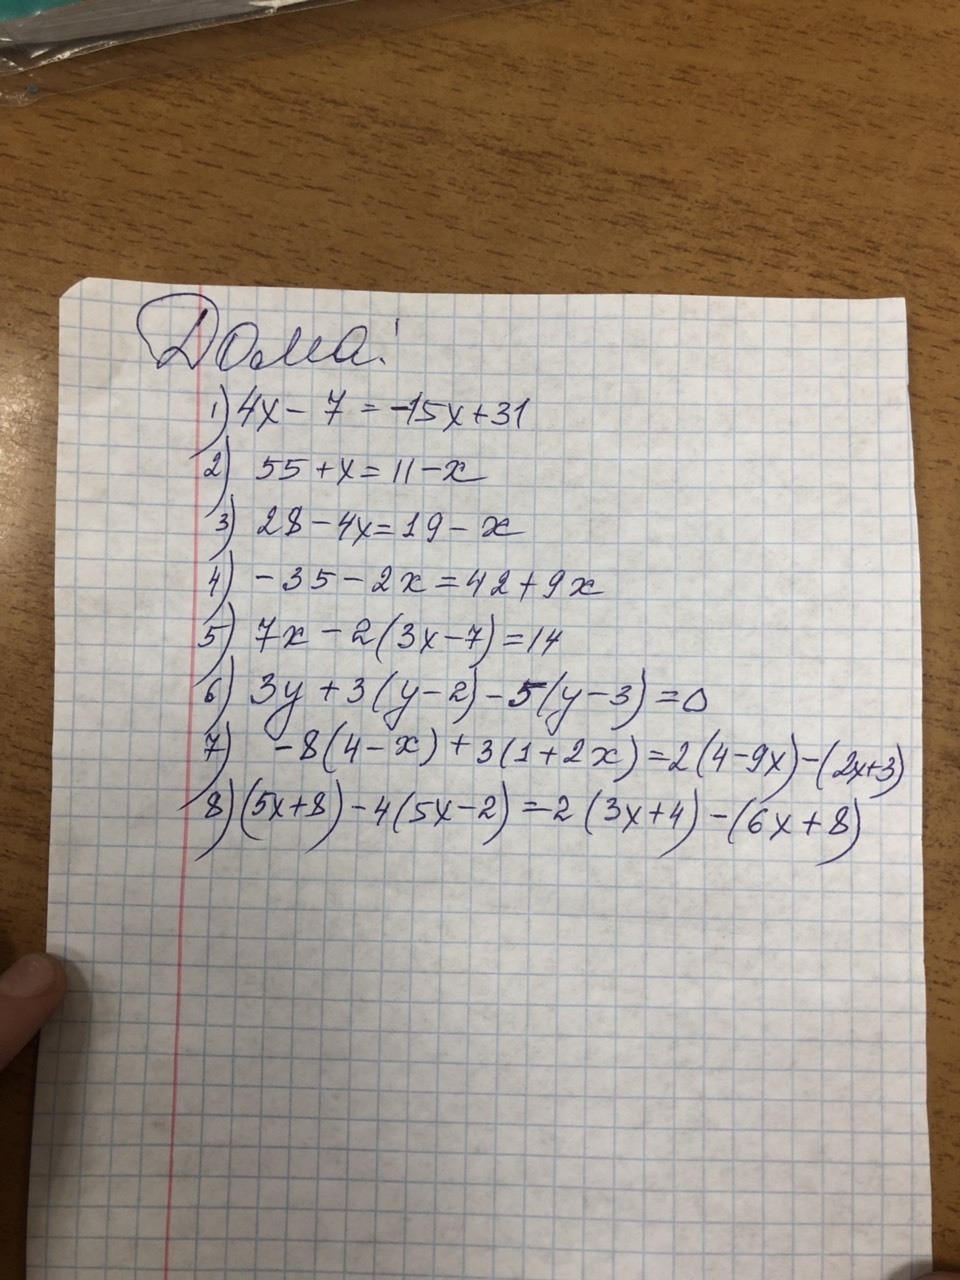 Дома!
1) 4x - 7 = -15x + 31
2) 55 + x = 11 - x
3) 28 - 4x = 19 - x
4) -35 - 2x = 42 + 9x
5) 7x - 2(3x - 7) = 14
6) 3y + 3(y - 2) - 5(y - 3) = 0
7) -8(4 - x) + 3(1 + 2x) = 2(4 - 9x) - (2x + 3)
8) (5x + 8) - 4(5x - 2) = -2(3x + 4) - (6x + 8)